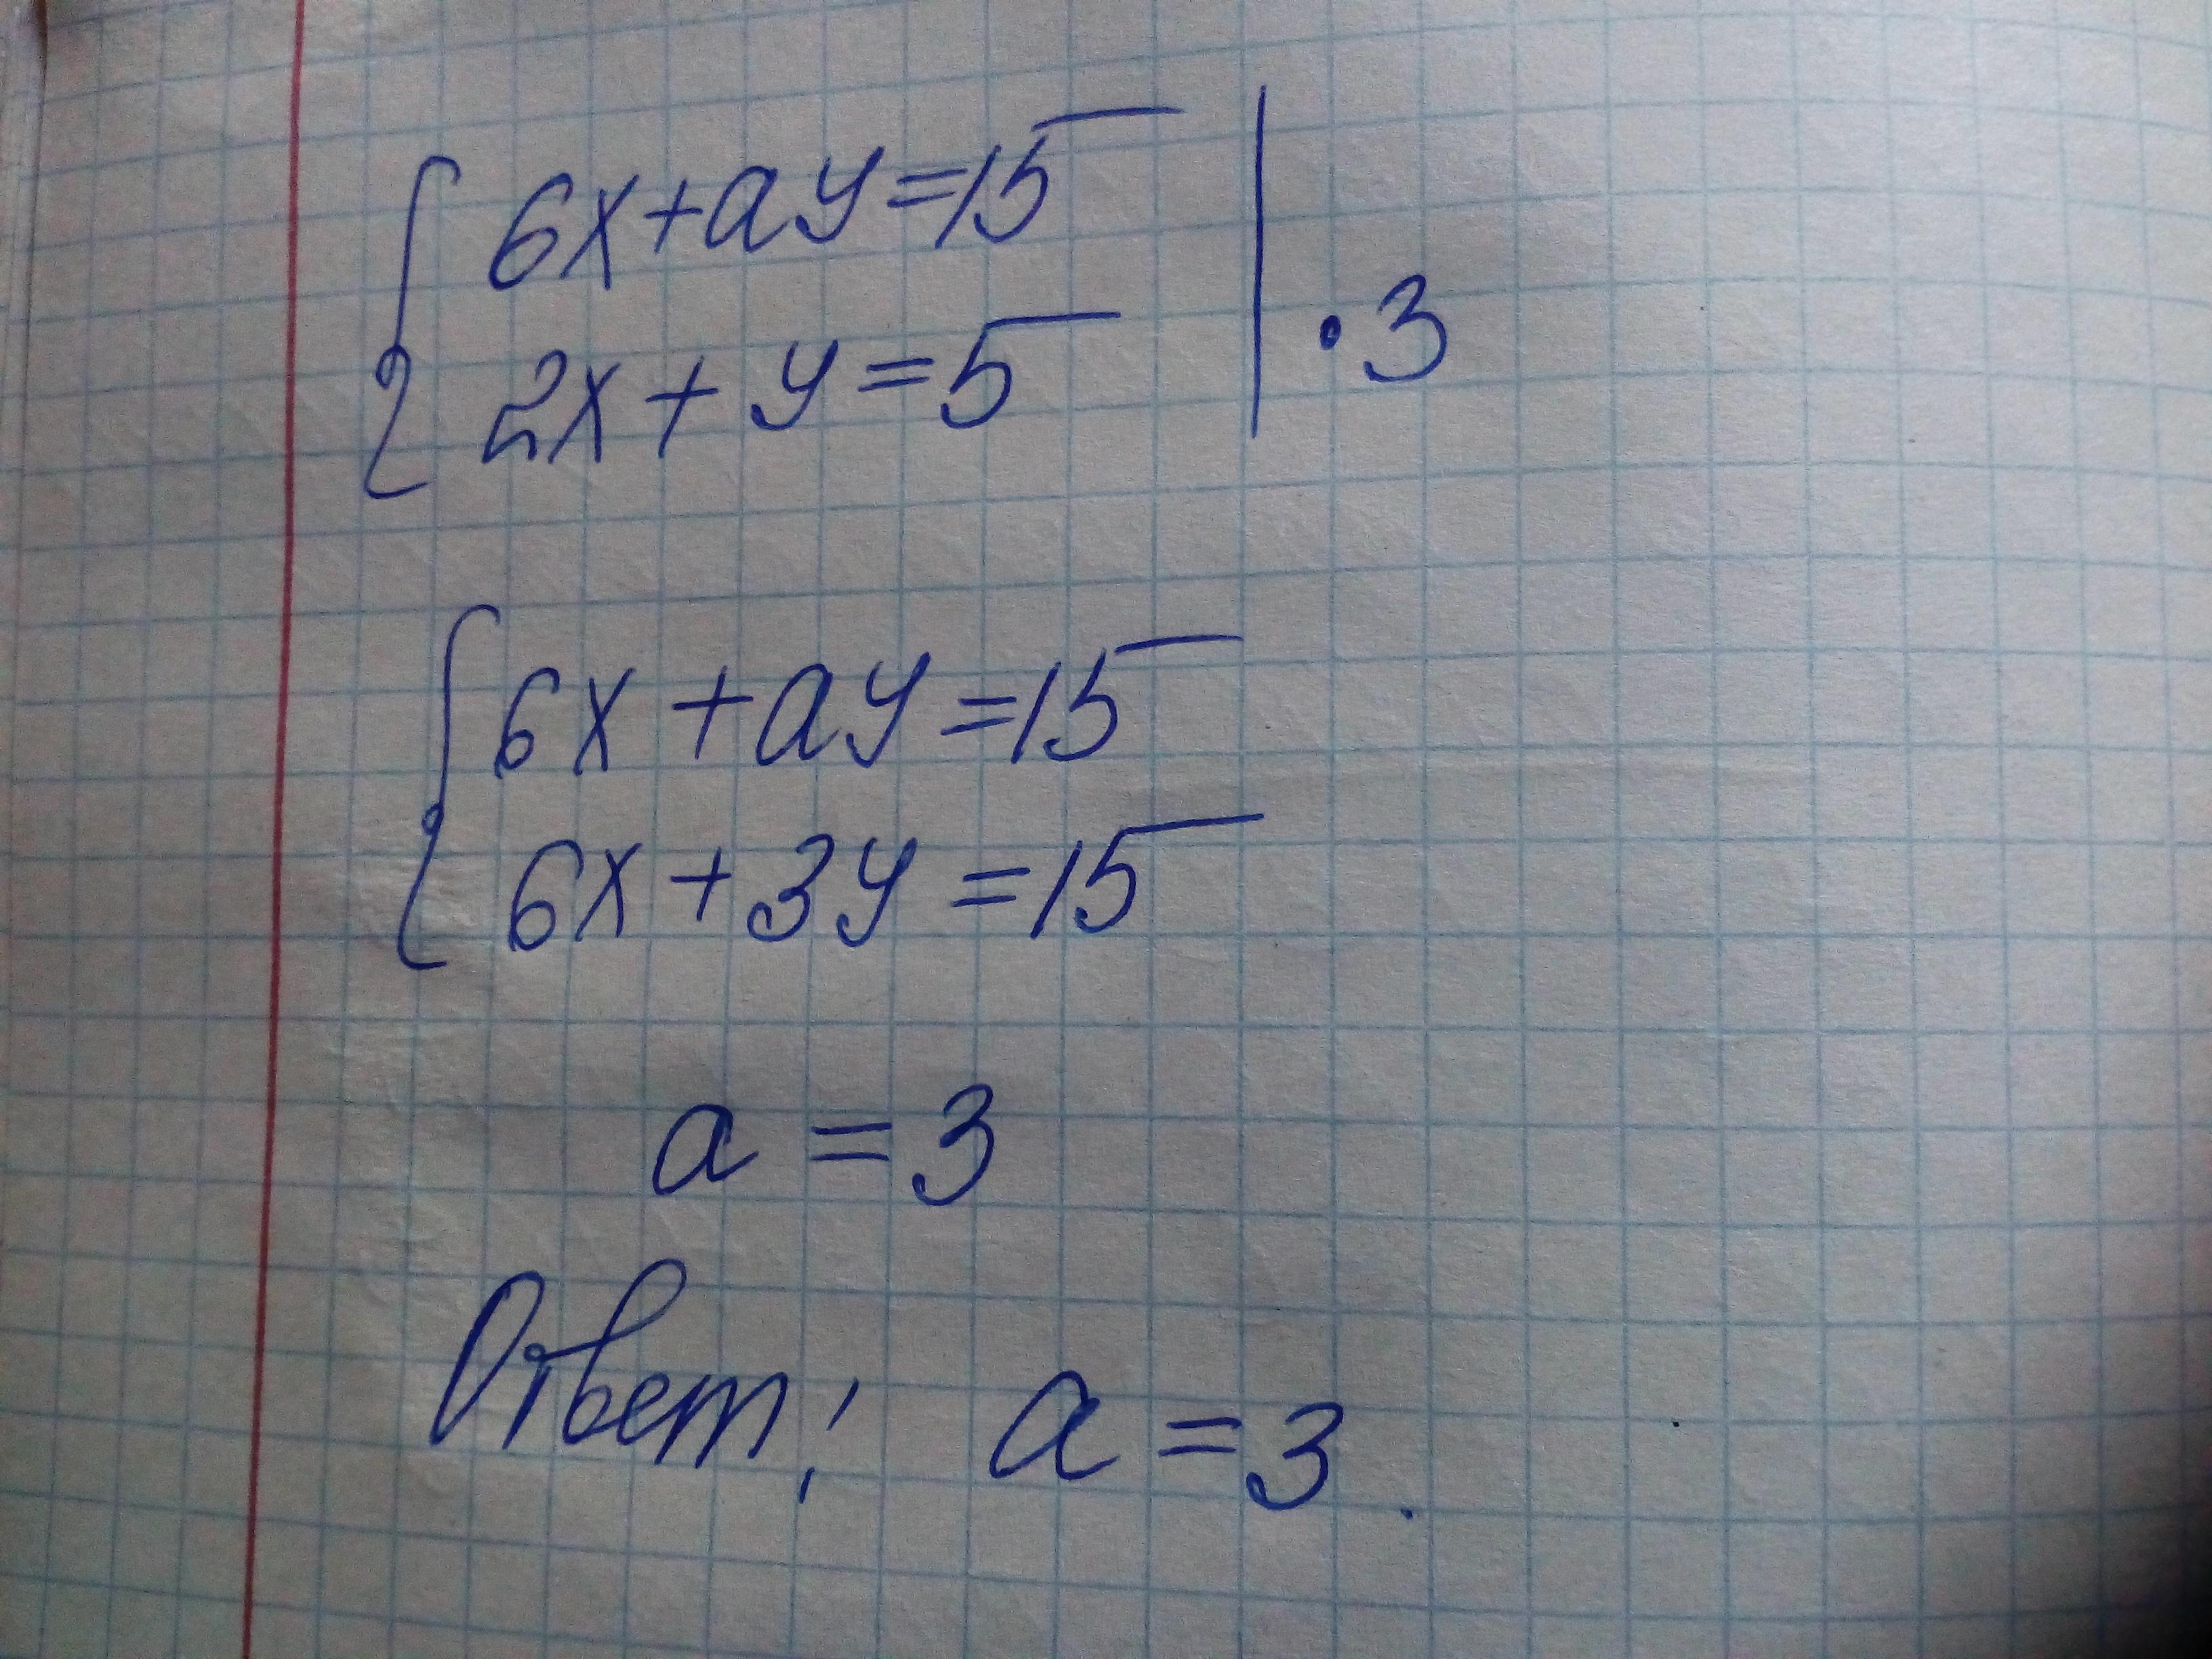 6x+ay=15
2x+y=5 | ·3
6x+ay=15
6x+3y=15
a=3
Ответ: a=3.